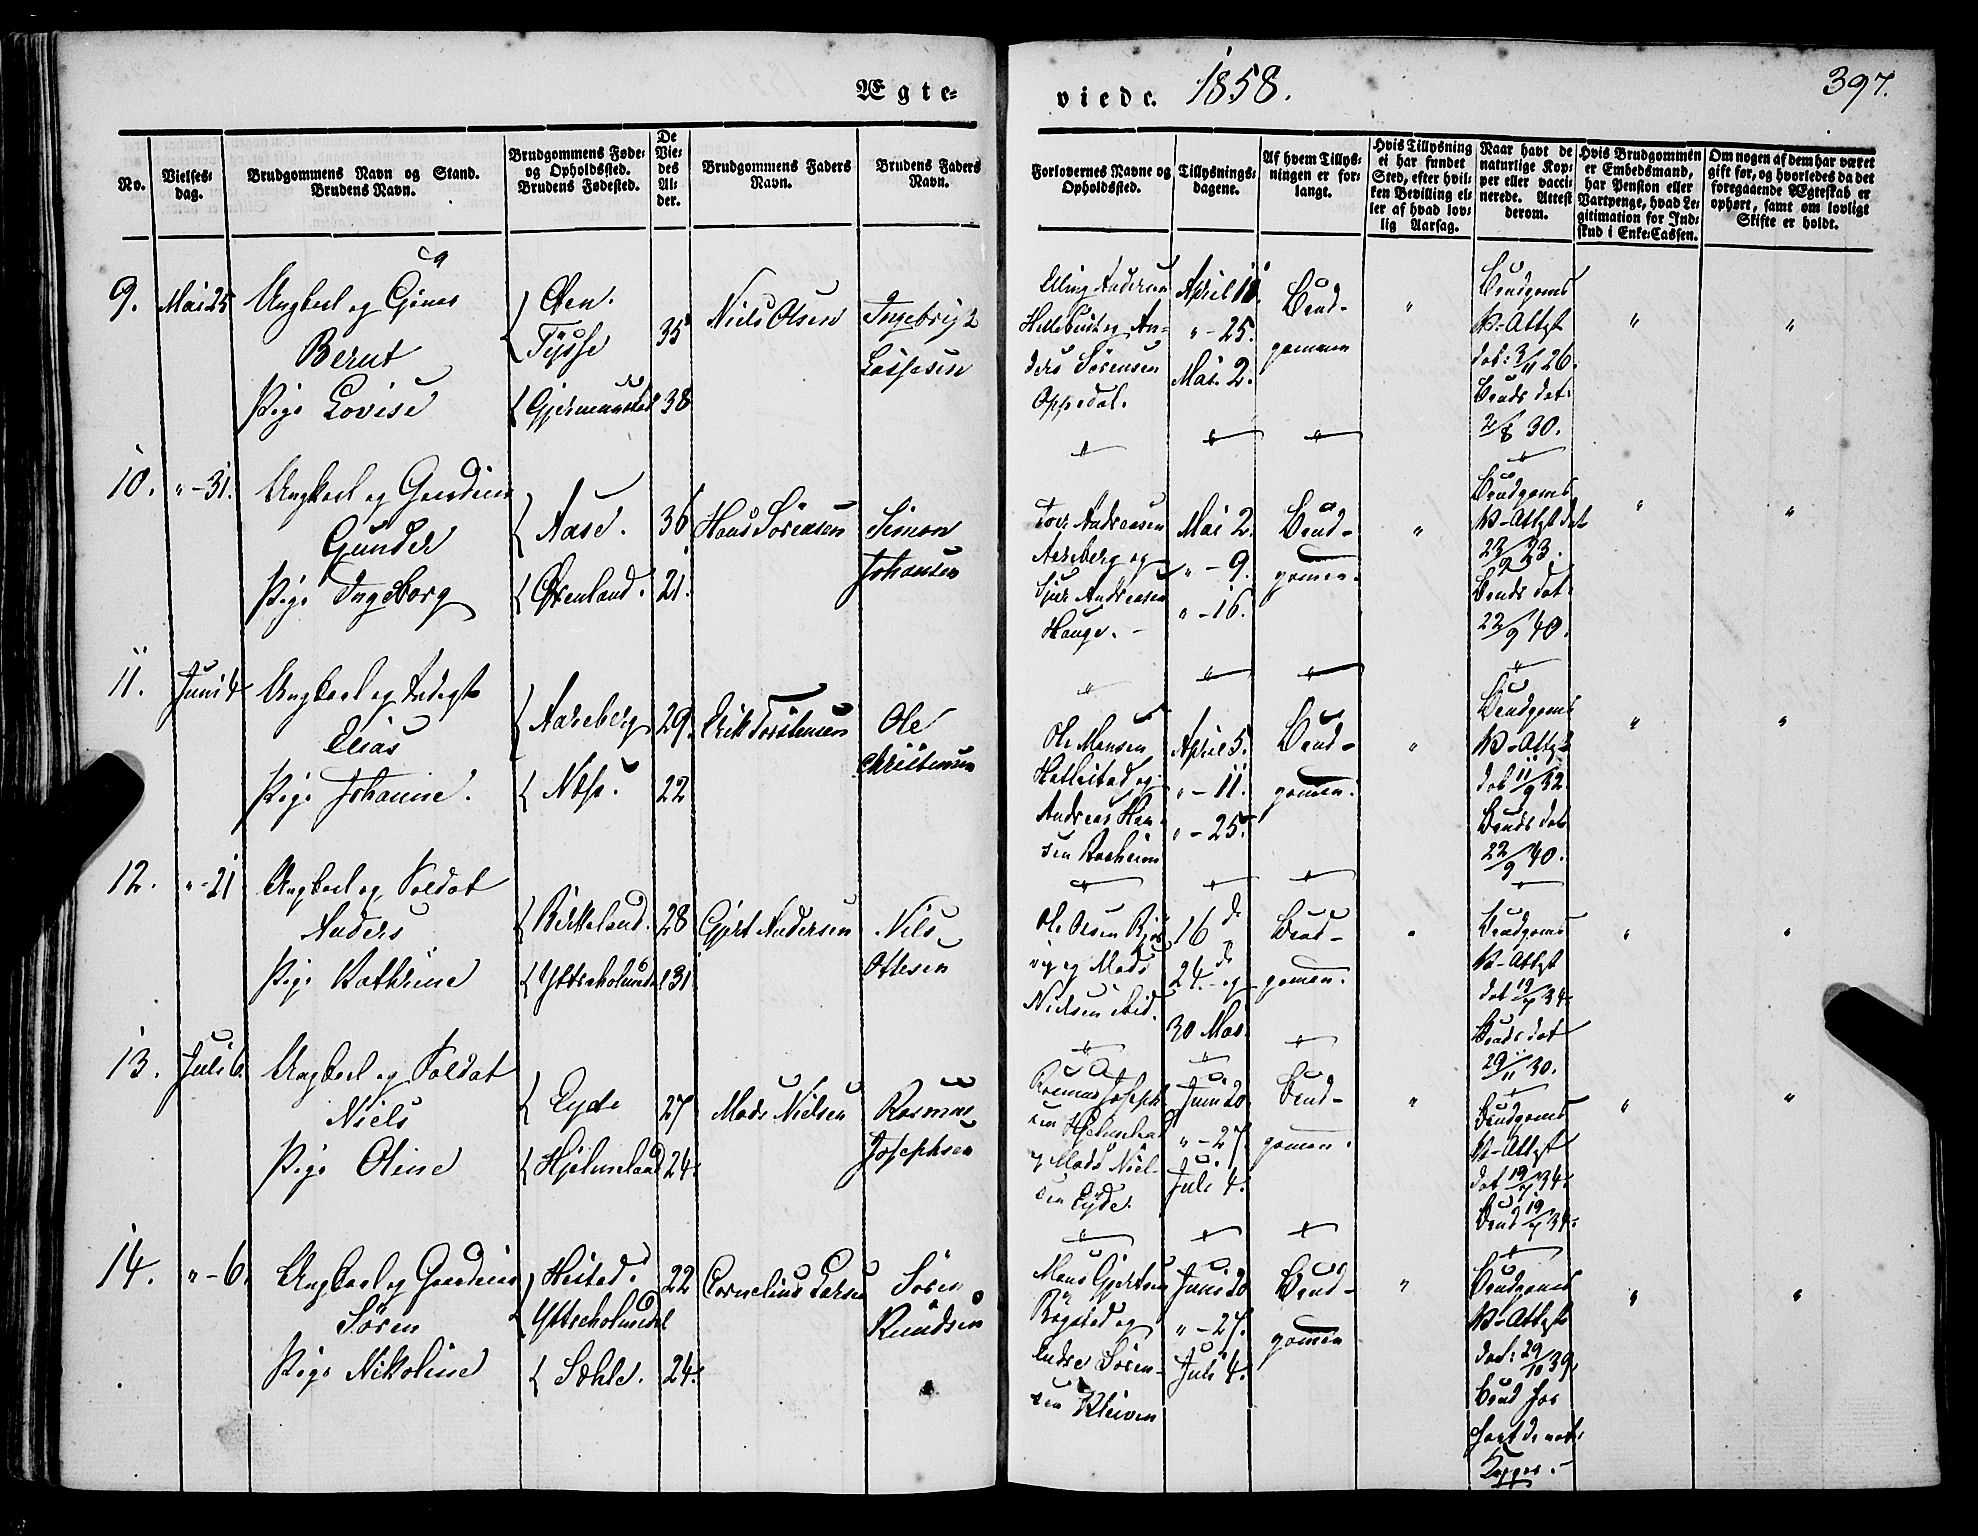 Ægte-
viede. 1858.
397.
No.
Vielses-
dag.
Brudgommens Navn og Stand.
Brudens Navn.
Brudgommens Føde-
og Opholdssted.
Brudens Fødested.
De
Vie-
des
Al-
der.
Brudgommens Faders
Navn.
Brudens Faders
Navn.
Forlovernes Navne og
Opholdssted.
Tillysnings-
dagene.
Af hvem Tillys-
ningen er for-
langt.
Hvis Tillysning
ei har fundet
Sted, efter hvil-
ken Bevilling el-
ler af hvad lov-
lig Aarsag.
Naar havt de
naturlige Kop-
per eller vacci-
nerede. Attest
derom.
Hvis Brudgommen
er Embedsmand,
har Pension eller
Vartpenge, hvad Le-
gitimation for Ind-
skud i Enke-Cassen.
Om nogen af dem har været
gift før, og hvorledes da det
foregaaende Ægteskab er
ophørt, samt om lovligt
Skifte er holdt.
9. Mai 25 Ungkarl og
Berent
Pige Lovise
Øen.
Tysse
35
38
Niels Olsen
Elling Andersen
An-
ders Sørensen
Oppedal.
April 18.
" - 25.
Mai 2.
Brud-
gommen
Brudgoms
V-Attest
dat: 3/11 26.
Bruds dat:
2/8 30.
10. " - 31. Ungkarl og Gaardmand
Gunder
Pige Ingeborg
Aase.
Øvenland.
36
21.
Hans Sørensen
Simon
Johansen
Andreasen
Aareberg og
Sjur Andreasen
Hauge. -
Mai 2.
" - 9.
" - 16.
Brud-
gomen.
Brudgoms
V-Attest dat
Bruds dat:
22/9 40.
11. Juni 4 Ungkarl og Inderst
Elias
Pige Johanne.
Aareberg
29.
22
Erik Torstensen
Ole
Christensen
Ole Monsen
Hatlestad og
Andreas Han-
sen
April 5.
" - 11.
" - 25.
Brud-
gomen.
Brudgoms
V-Attest
dat 11/9 32.
Bruds dat
22/9 40.
12. " - 21 Ungkarl og Soldat
Anders
Pige Kathrine
Birkeland.
Yttreholmedal
28
31
Gjert Andersen
Nils
Ottesen
Ole Olsen
og Mads
Nielsen ibid.
16 d.
24. d. og
30 Mai.
Brud-
gomen.
Brudgoms
V-Attest
dat 19/7 34.
Bruds dat
29/11 30.
13. Juli 6. Ungkarl og Soldat
Niels
Pige Oline
Eyde
Hjelmeland
27
24.
Mads Nielsen
Rasmus
Josephsen
Rasmus Joseph-
sen Hjelmeland
og Mads Niel-
sen Eyde.
Juni 20
" - 27
Juli 4.
Brud-
gomen.
Brudgoms
V-Attest
dat 19/7 34.
Brud 19/7 34.
14. " - 6. Ungkarl og Gaardmand
Søren
Pige Nikoline
Hestad.
Yttreholmedal
Sæhle.
22
24.
Cornelius Larsen
Søren
Knudsen
Mons Gjertsen
og
Endre Søren-
sen Kleiven
Juni 20
" - 27.
Juli 4.
Brud-
gomen
Brudgoms
V-Attest
dat: 29/10 39.
Brud har
havt de nat.
Kopper. -